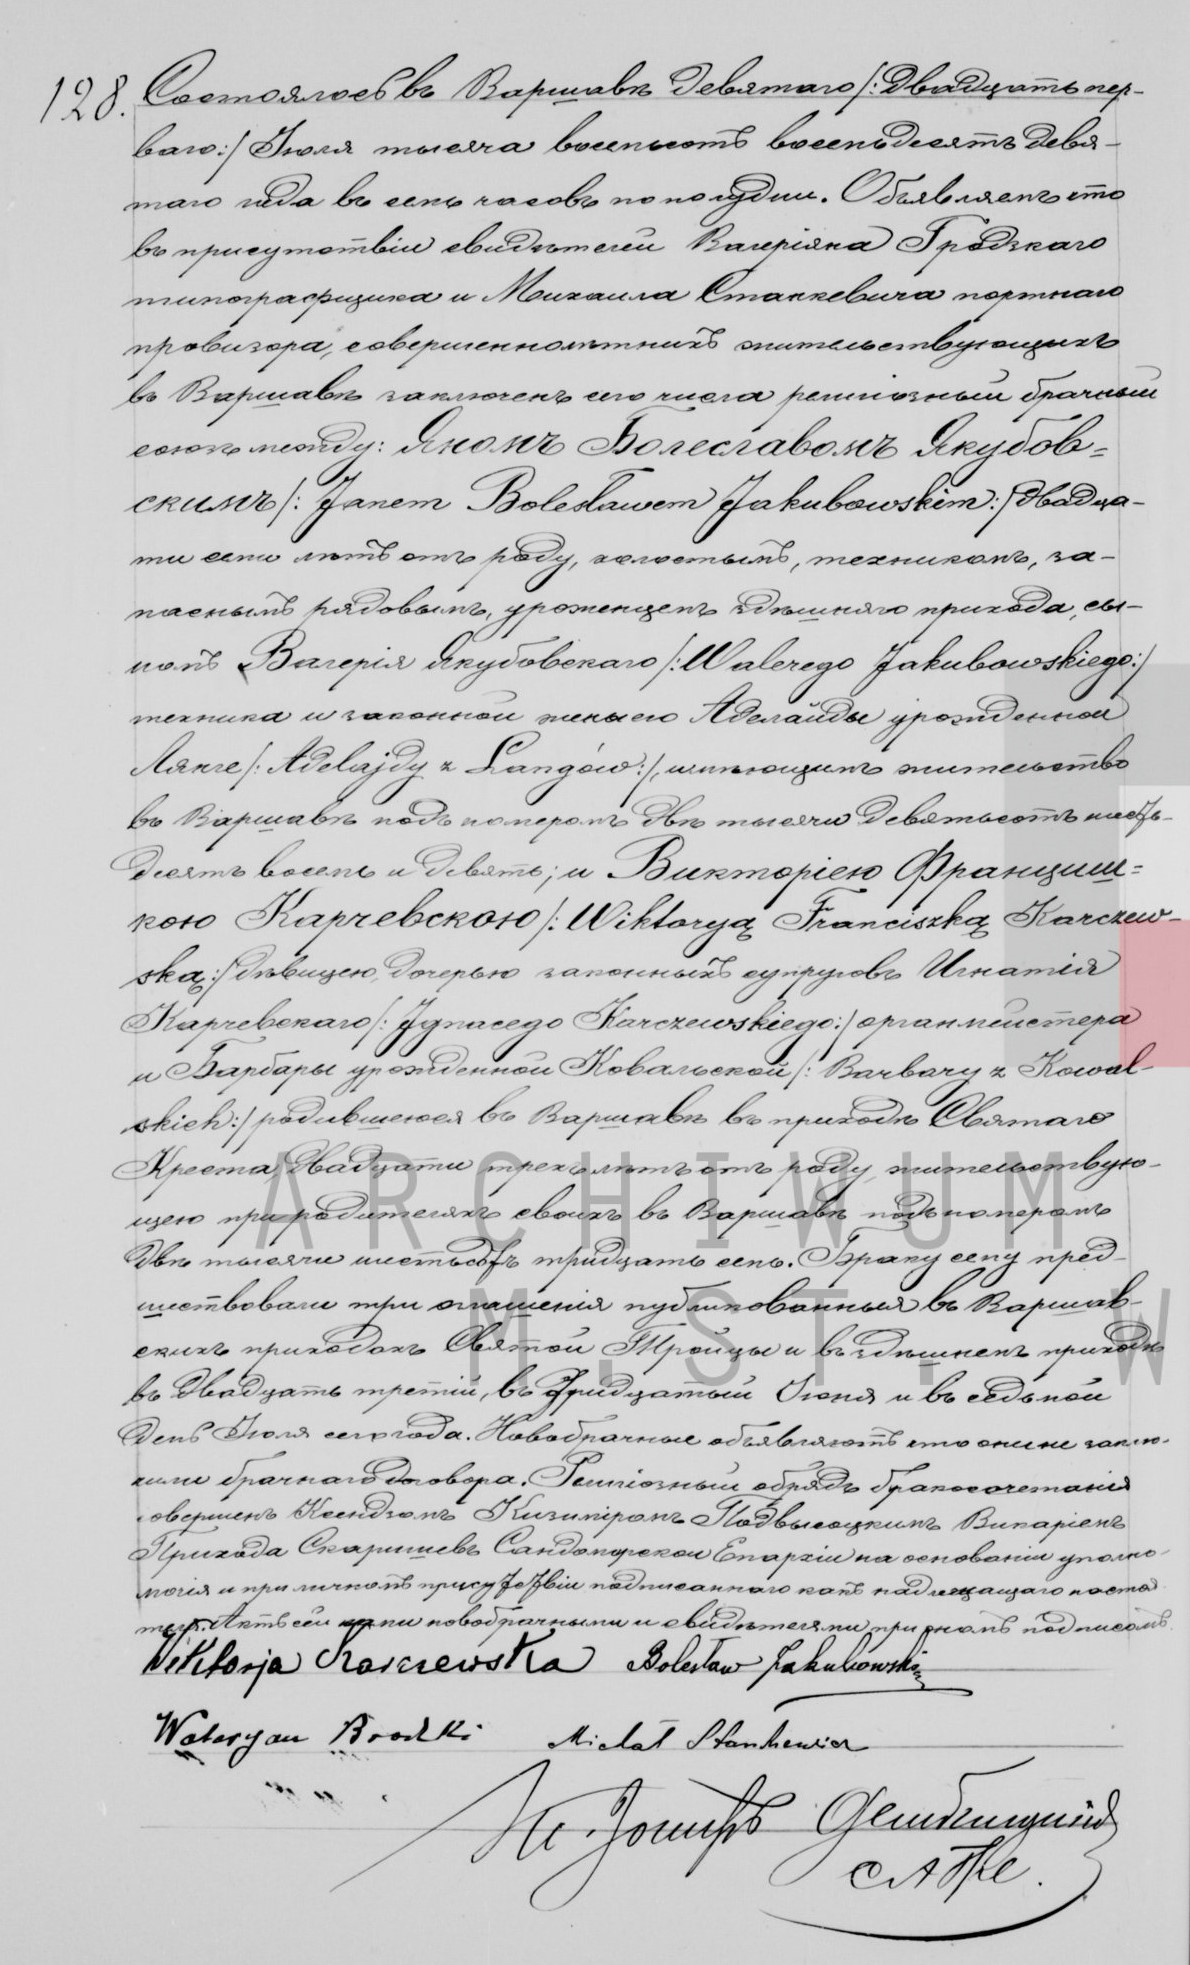 128. Состоялось въ Варшавѣ девятаго /: двадцать пер-
ваго:/ Іюля тысяча восемьсотъ восемьдесятъ девя-
таго года въ семь часовъ по полудни. Объявляемъ что
въ присутствіи свидѣтелей Валеріяна Гродзкаго
типографщика и Михаила Станкевича портнаго
провизора, совершеннолѣтнихъ жительствующихъ
въ Варшавѣ заключенъ сего числа религіозный брачный
союзъ между: Яномъ Болеславомъ Якубов=
скимъ /: Janem Bolesławem Jakubowskim:/ двадца-
ти семи лѣтъ отъ роду, холостымъ, техникомъ, за-
паснымъ рядовымъ, уроженцемъ здѣшняго прихода, сы-
номъ Валерія Якубовскаго /: Walerego Jakubowskiego:/
техника и законной жены его Аделайды урожденной
Лянге /: Adelajdy z Langów:/, имѣющимъ жительство
въ Варшавѣ подъ номеромъ двѣ тысячи девятьсотъ шесть-
десятъ восемь и девять; и Викторіею Францишь=
кою Карчевскою /: Wiktoryą Franciszką Karczew-
ską:/ дѣвицею, дочерью законныхъ супруговъ Игнатія
Карчевскаго /: Ignacego Karczewskiego:/ органмейстера
и Барбары урожденной Ковальской /: Barbary z Kowal-
skich:/ родившеюся въ Варшавѣ въ приходѣ Святаго
Креста, двадцати трехъ лѣтъ отъ роду, жительствую-
щею при родителяхъ своихъ въ Варшавѣ подъ номеромъ
двѣ тысячи шестьсотъ тридцать семь. Браку сему пред-
шествовали три оглашенія публикованныя въ Варшав-
скихъ приходахъ Святой Тройцы и въ здѣшнемъ приходѣ
въ двадцать третій, въ тридцатый Іюня и въ седьмой
день Іюля сего года. Новобрачные объявляютъ что они не заклю-
чили брачнаго договора. Религіозный обрядъ бракосочетанія
совершенъ Ксендзомъ Казиміромъ Подвысоцкимъ Викаріемъ
Прихода Скаришевъ Сандомирской Епархіи на основаніи уполно-
мочія и при личномъ присутствіи подписаннаго какъ надлежащаго настоя
теля. Актъ сей нами новобрачными и свидѣтелями приономъ подписанъ.
Wiktorja Karczewska Bolesław Jakubowski
Waleryan Brodzki Michał Stankiewicz
Кс. Іосифъ
САГРС.
ARCHIWUM
M. ST. W